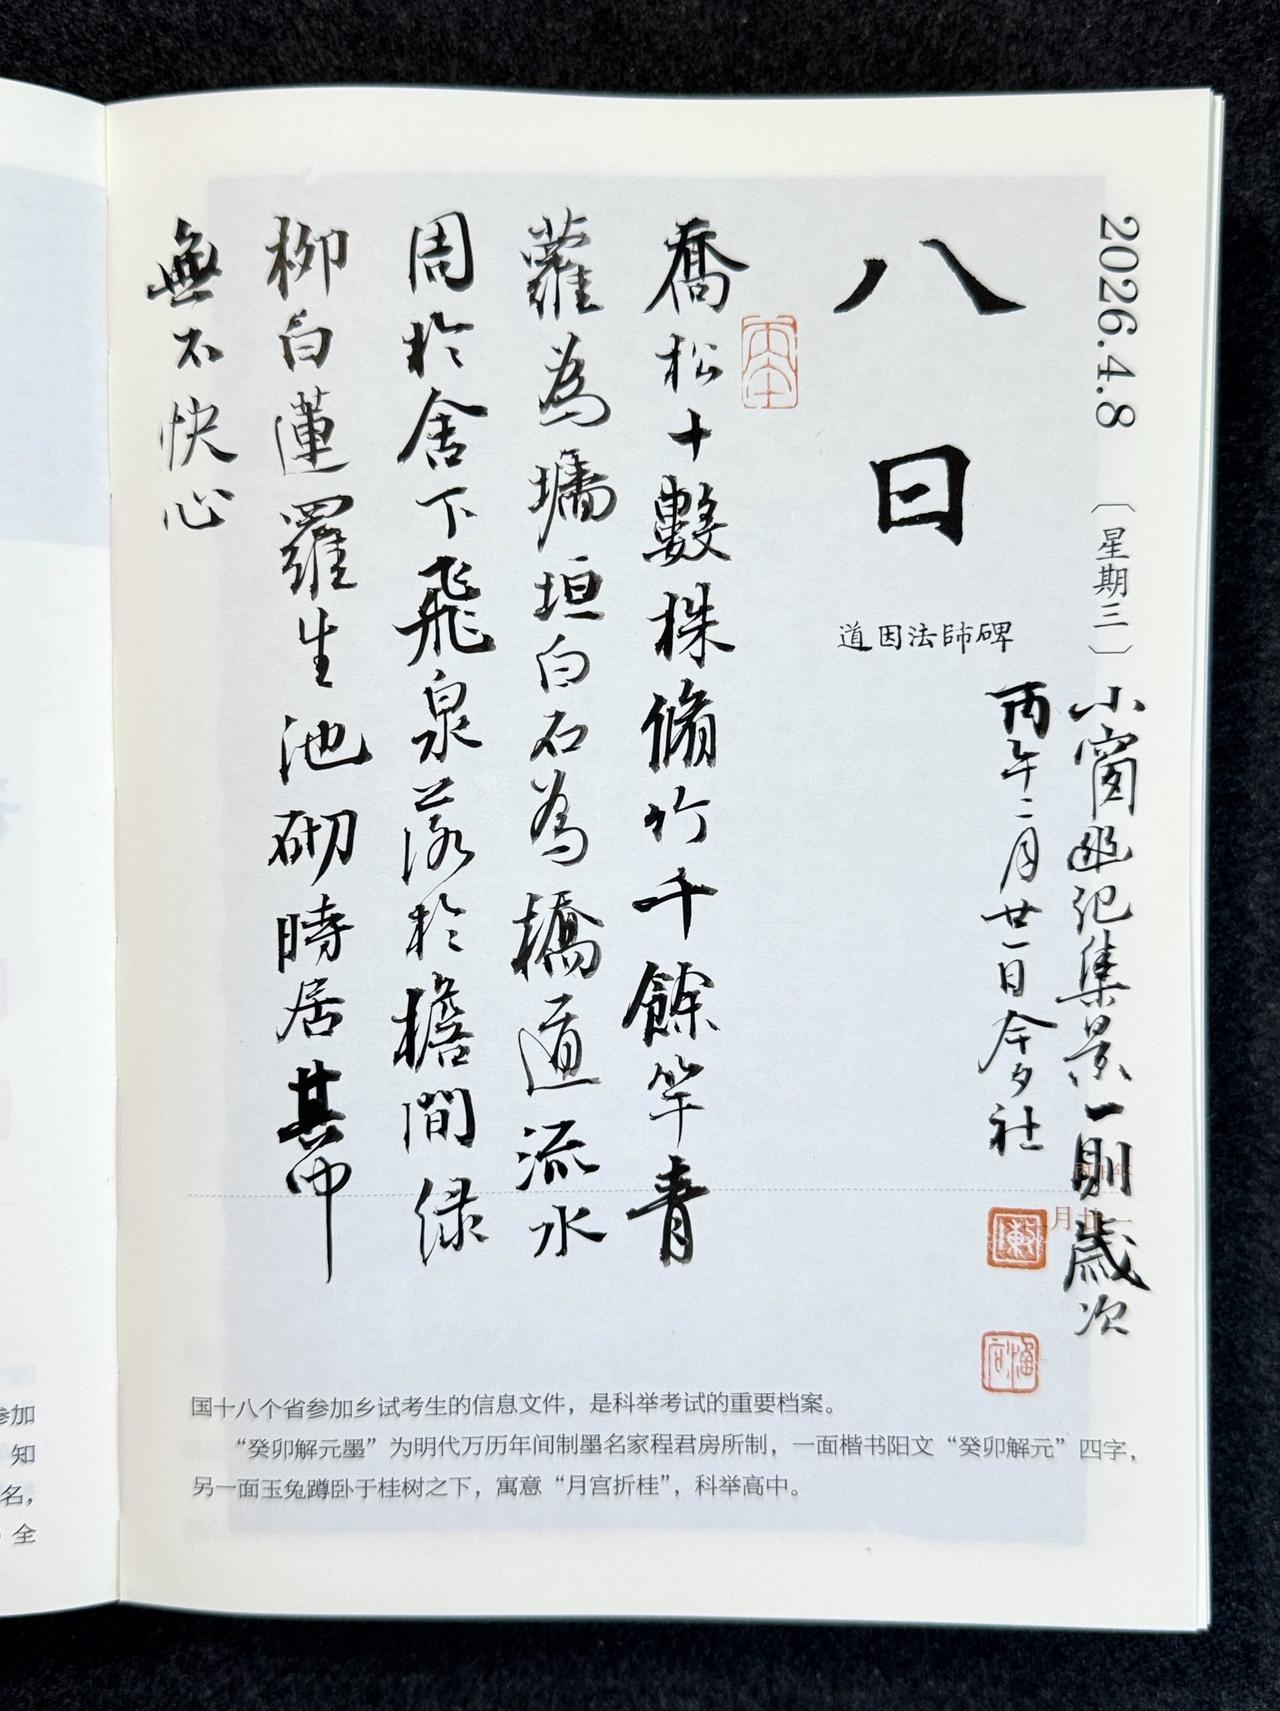 2026.4.8 〔星期三〕
小窗幽记集景一則歲次
丙午二月廿一日今夕社
八日
道因法師碑
喬松十數株脩竹千餘竿青
蘿為墻垣白石為橋道流水
周於舍下飛泉落於檐間绿
柳白蓮羅生池砌時居其中
無不快心
国十八个省参加乡试考生的信息文件，是科举考试的重要档案。
“癸卯解元墨”为明代万历年间制墨名家程君房所制，一面楷书阳文“癸卯解元”四字，
另一面玉兔蹲卧于桂树之下，寓意“月宫折桂”，科举高中。
参加
知
名，
全